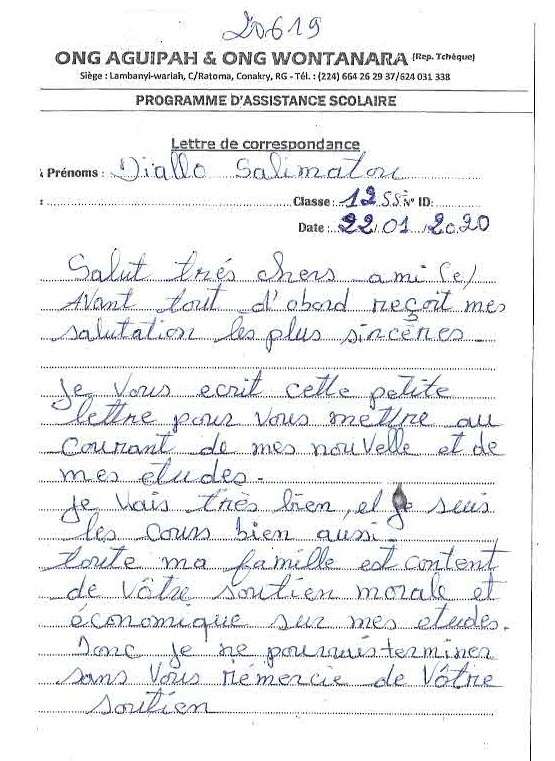 20619
ONG AGUIPAH & ONG WONTANARA (Rep. Tchèque)
Siège : Lambanyi-wariah, C/Ratoma, Conakry, RG - Tél. : (224) 664 26 29 37/624 031 338
PROGRAMME D'ASSISTANCE SCOLAIRE
Lettre de correspondance
Prénoms : Diallo Salimatou
: Classe : 12 SS N° ID:
Date : 22.01.2020
Salut trés chers ami (e)
Avant tout d'abord reçoit mes
salutation les plus sincères.
Je vous ecrit cette petite
lettre pour vous mettre au
courant de mes nouvelle et de
mes etudes.
Je vais très bien, et je suis
les cours bien aussi.
toute ma famille est content
de vôtre soutien morale et
économique sur mes etudes.
Donc je ne pourrais terminer
sans vous remercie de vôtre
soutien